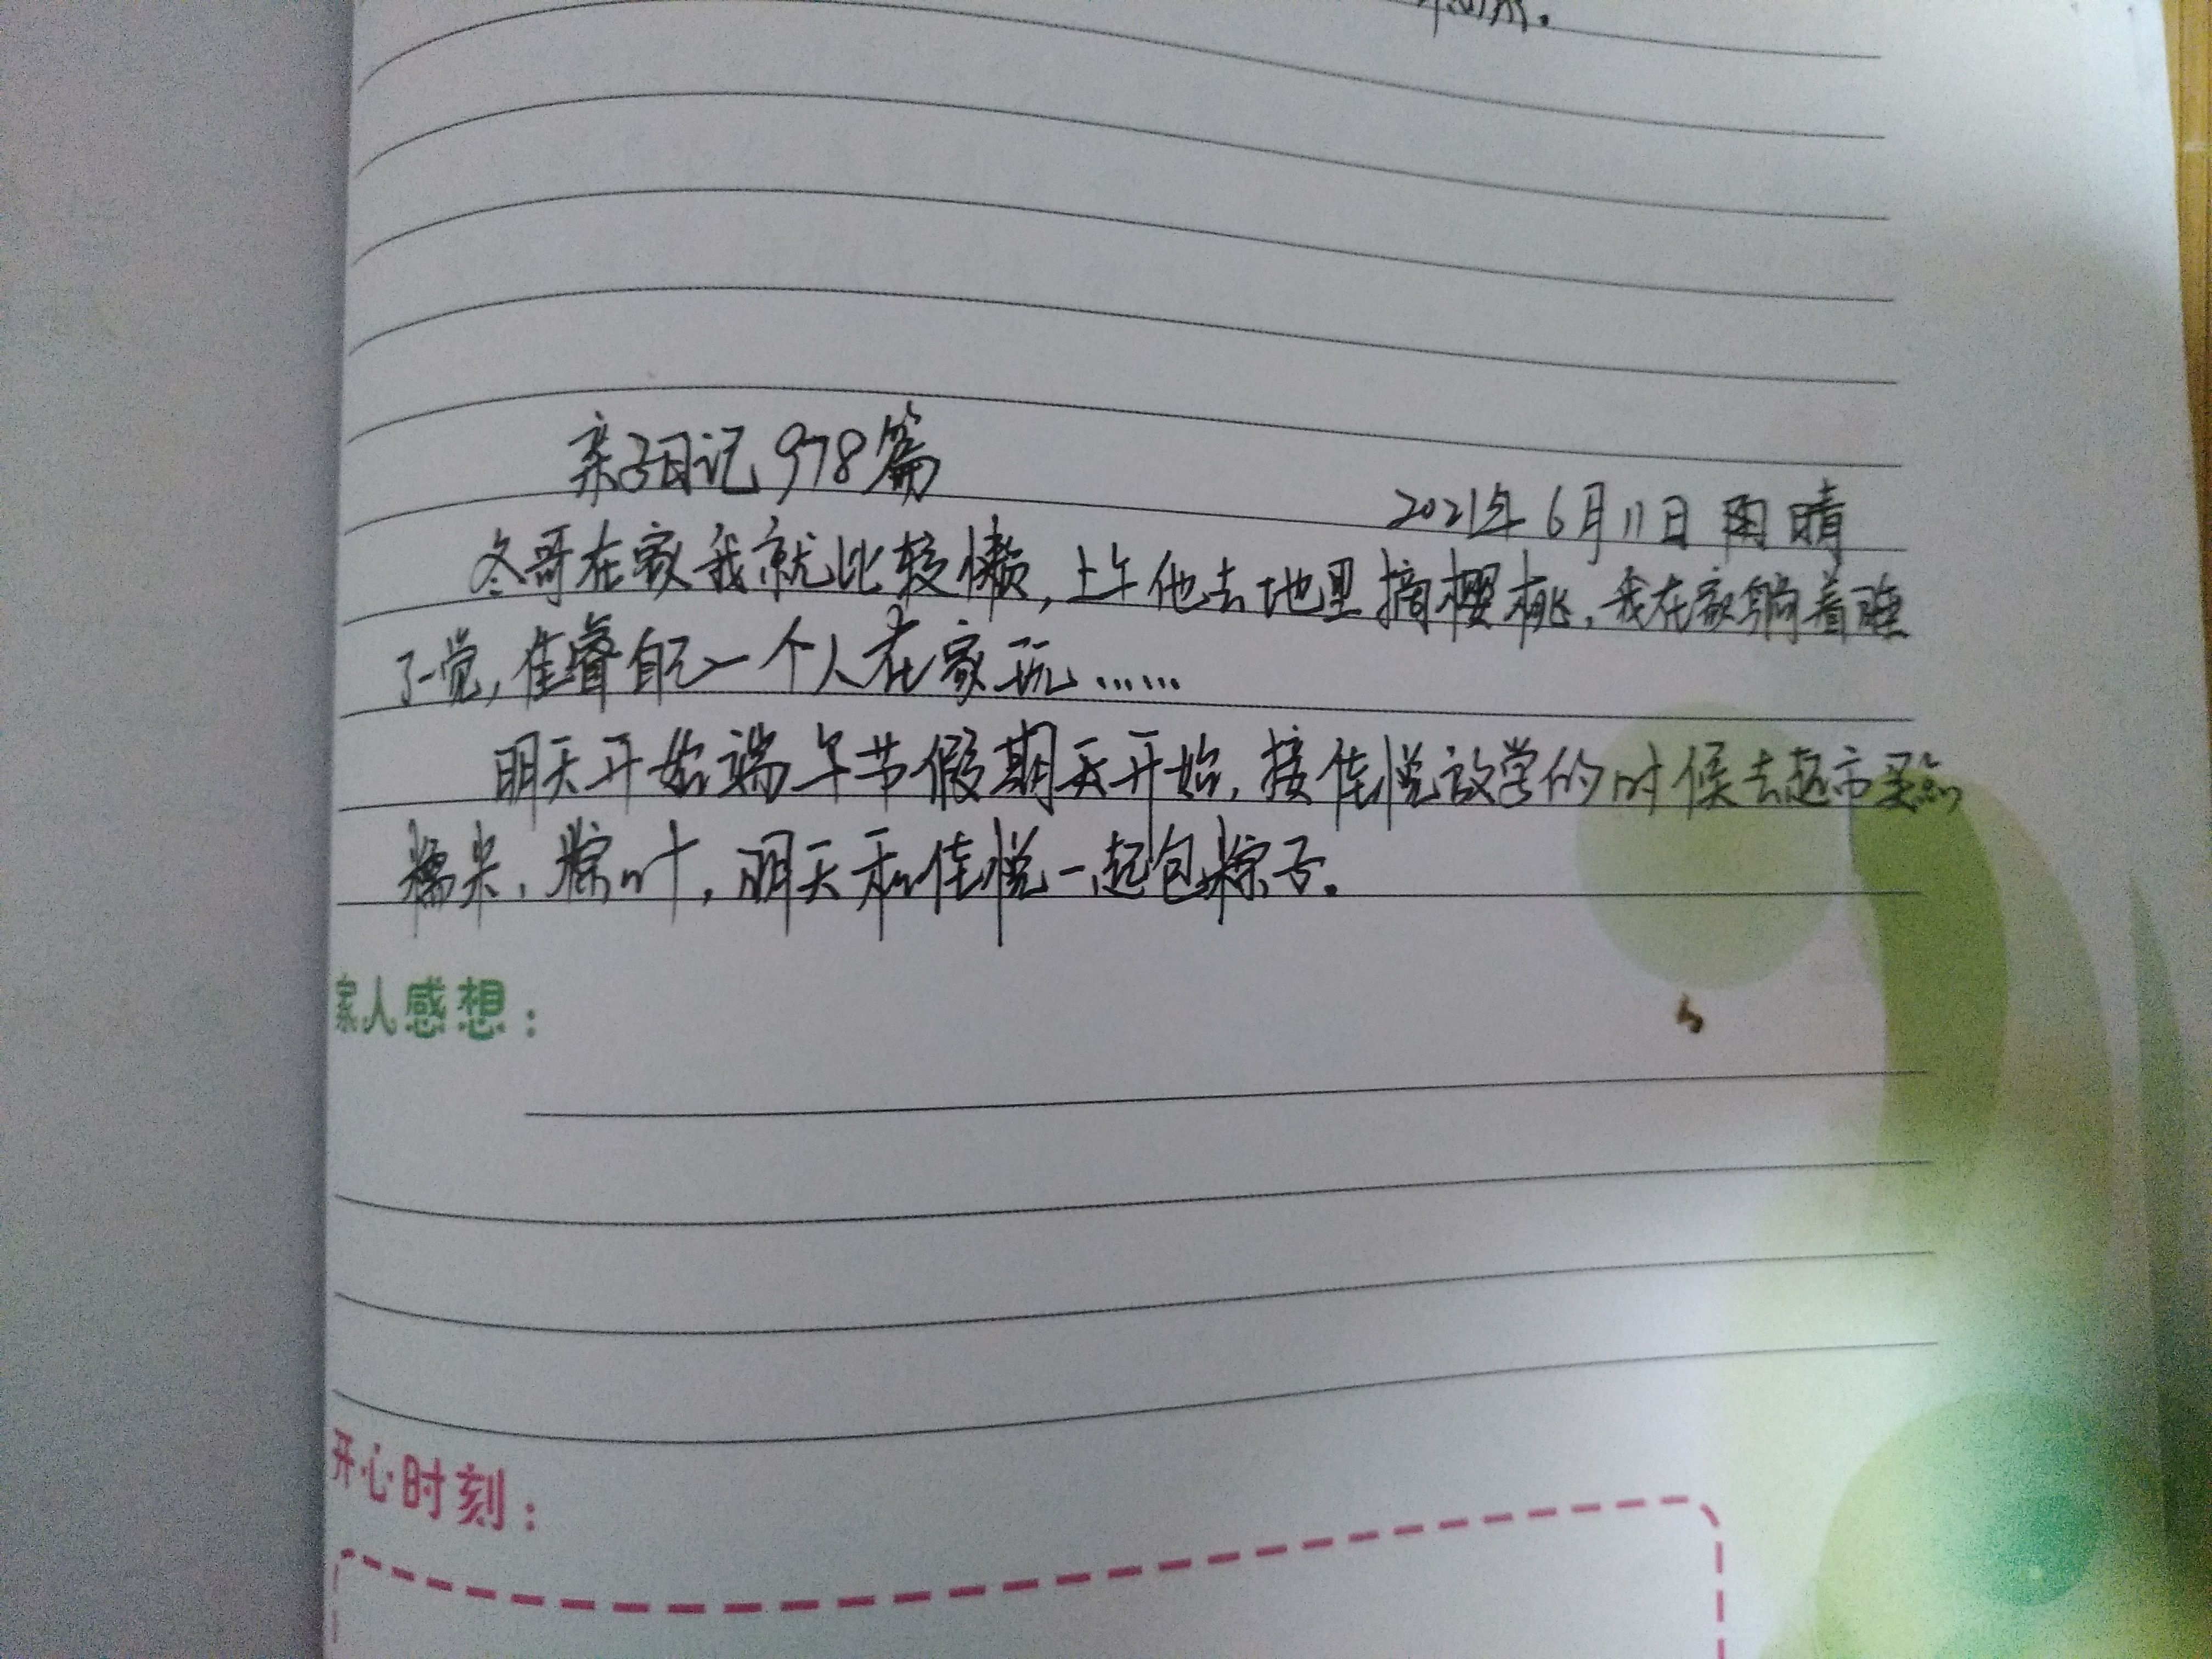 亲子日记 978篇
2021年 6月11日 雨 晴
冬哥在家我就比较懒，上午他去地里摘樱桃，我在家躺着睡
了一觉，佳睿自己一个人在家玩……
明天开始端午节假期天开始，接佳悦放学的时候去超市买点
糯米、粽叶，明天和佳悦一起包粽子。
家人感想：
开心时刻：